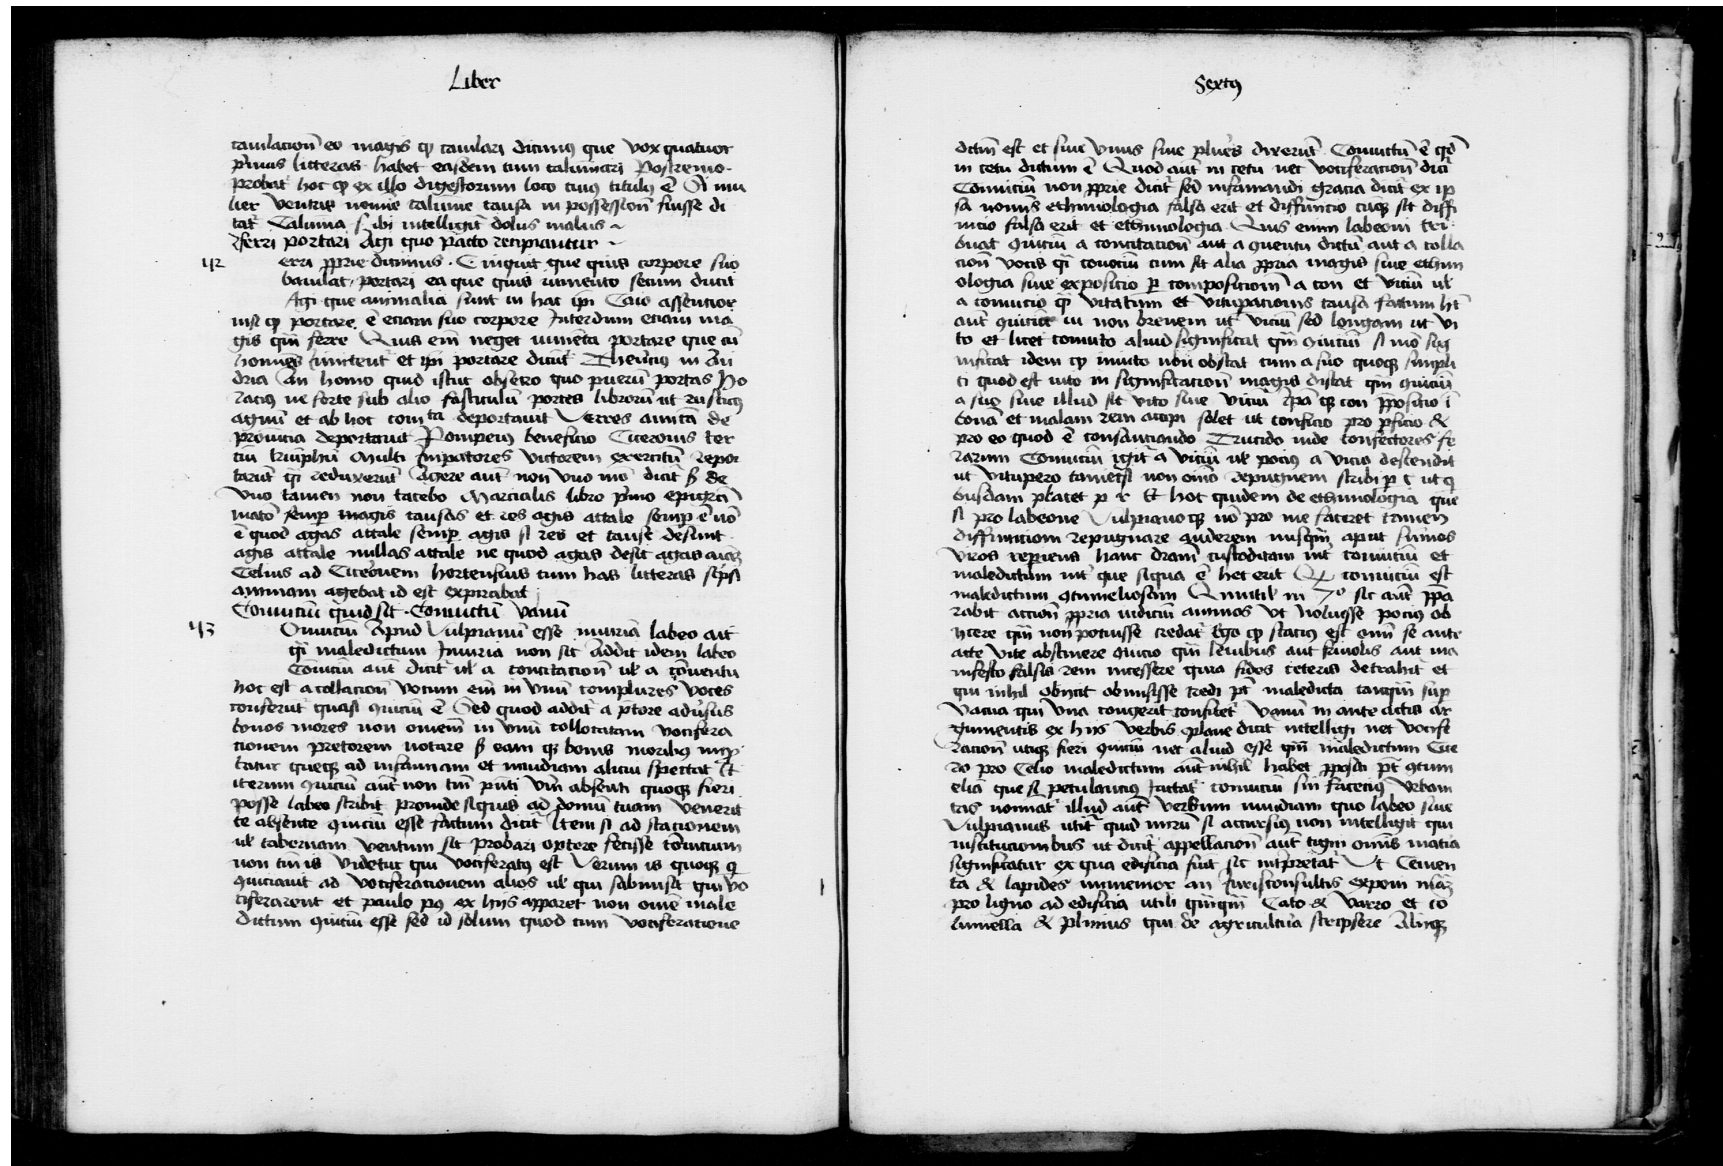 Liber
cavilacionē eo magis qꝫ cavilari dicimꝰ que vox quatuor
pͥmas litteras habet easdem cum calumnari Postremo
probat hoc qꝫ ex illo digestorum loco cuiꝰ titulꝰ ē Si mu
lier ventris nomīe calumīe causa in possessionē fuisse di
cat̄ Calumīa .s. ibi intelligit̄ dolus malus
Ferri portari Agi quo pacto recipiantur
42 erri ꝓprie dicimus inquit que quis corpore suo
baiulat portari ea que quis iumento secum ducit
Agi que animalia sunt in hac ip̄i Caio assentior
nisi qꝫ portare ē etiam suo corpore Interdum etiam ma
gis qm̄ ferre Quis em̄ neget iumēta portare que cū
homines imitent̄ et ip̄i portare dicūt̄ Therēciꝰ in An
dria An homo quid istuc obsecro quo puerū portas Ho
raciꝰ ne forte sub alio fasciculū portes librorū ut rusticꝰ
agnū et ab hoc comta deportavit Verres amicā de
provīcia deportavit Pompeius beneficio Ciceronis ter
ciū triūphū Multi Impatores victorem exercitū repor
tarūt qi reduxerūt Agere aut̄ non uno mō dicit̄ sꝫ de
uno tamen non tacebo Marcialis libro pͥmo epigrā
matō semꝑ magis causas et res agis attale semꝑ ē nō
ē quod agas attale semꝑ agis si res et cause desunt
agis attale mullas attale ne quod agas desit agas aīaꝫ
Celius ad Ciceronem hortensius cum has litteras scpsi
animam agebat id est expirabat
Convicium quid sit Convictum vanū
43 Onviciū Apud Vulpianū esse iniuriā labeo ait
qi maledictum Iniuria non sit Addit idem labeo
Conviciū aut̄ dicit̄ ul̄ a concitacionē ul̄ a conventu
hoc est a collacionē vocum em̄ in unū complures voces
conferūt̄ quasi ꝯviciū ē Sed quod addit̄ a p̄tore adv̄sus
bonos mores non omnem in unū collocatam vocifera
cionem pretorem notare sꝫ eam qꝫ bonis moribꝰ imꝓ
batur queqꝫ ad infamiam et invidiam alicui spectat Et
iterum ꝯviciū aut̄ non tm̄ p̄n̄ti vm̄ absenti quoqꝫ fieri
posse labeo scribit proinde siquis ad domū tuam venerit
te absente ꝯviciū esse factum dicit̄ Item si ad stacionem
ul̄ tabernam ventum sit probari oꝓtere fecisse convicium
non tm̄ is videtur qui vociferatꝰ est Verum is quoqꝫ q̄
ꝯviciavit ad vociferacionem alios ul̄ qui submisit qui vo
ciferarent et paulo pꝰ ex hijs apparet non omē male
dictum ꝯviciū esse sed id solum quod cum vociferacione
Sextꝰ
dictm̄ est et sive unus sive plures dixerūt Convictū ē qd̄
in cetu dictum ē Quod aut̄ in cetu nec vociferacionē dicī
Convicū non ꝓprie dicit̄ sed infamandi gracia dicit̄ ex ip
sa nomīs ethimologia falsa erit et diffinicio cuiꝰqꝫ sit diffi
nicio falsa erit et ethimologia Quis enim labeoni tri
buat ꝯviciū a concitacionē aut a qventu dictū aut a colla
cionē vocis qi convociū cum sit alia ꝓpria magis sive ethim
ologia sive exposicio p composicionē a con et viciū ul̄
a convicio qi vitatum et vituꝑacionis causa factum ht̄
aut̄ ꝯviciū in non brevem ut viciū sed longam ut vi
to et licet convito aliud significat qm̄ ꝯviciū si mō sig
nificat idem qꝫ invito nihī obstat cum a suo quoqꝫ simpli
ci quod est vito in significacionē magis distat qm̄ ꝯviciū
a suo sive illud sit vito sive viciū rꝑa qꝫ con ꝓposicio ī
bonā et malam rem accipi solet ut conficio pro ꝑficio &
pro eo quod ē consauciando Trucido inde confectores fe
rarum Convicū igit̄ a viciū ul̄ pociꝰ a vicio descendit
ut vitupero tametsi non oīno repugnem scribi p c ut q
busdam placet p t Et hoc quidem de ethimologia que
si pro labeone Vulpianoqꝫ nō pro me faceret tamen
diffinitionī repugnare auderem nusqm̄ aput sūmos
viros reperiens hanc dram̄ custoditam int̄ convicū et
maledictum int̄ que siqua ē hec erit Qꝫ convicū est
maledictum ꝯtumeliosum Quintil in 7º sic aut̄ ꝓpa
rabit accionē ꝓpria iudiciū animos ut noluisse pociꝰ ob
ijcere qm̄ non potuisse credat̄ Ergo qꝫ staciꝰ est omī se ante
acte vite abstinere ꝯvicio qm̄ levibus aut frivolis aut ma
nifesto falsis rem incessere quia fides ceteris detrahit̄ et
qui nihil obijcit obmisisse credi pt̄ maledicta tanqm̄ suꝑ
vacua qui vana congerit confitet̄ vanū in ante actis ar
gumentis ex hijs verbis plane dicit intelligi nec vocife
racionē utiqꝫ fieri ꝯviciū nec aliud esse qm̄ maledictum Cice
ro pro Celio maledictum aut̄ nihil habet ꝓposita pt̄ ꝯtum
eliā que si petulanciꝰ iactat̄ convicū sin faceciꝰ urbani
tas nominat̄ illud aut̄ verbum invidiam quo labeo sive
Vulpianus utit̄ quid mirū si accursiꝰ non intelligit qui
institucionibus ut dicit̄ appellacionē aut̄ tigni omīs matia
significatur ex qua edificia fiūt sic int̄pretat̄ Ut Cemen
ta & lapides immemor an Iurisconsultis exponi mām̄
pro ligno ad edificia utili qm̄qm̄ Cato & Varro et co
lumella & plinius qui de agricultura scripsere Aliiqꝫ